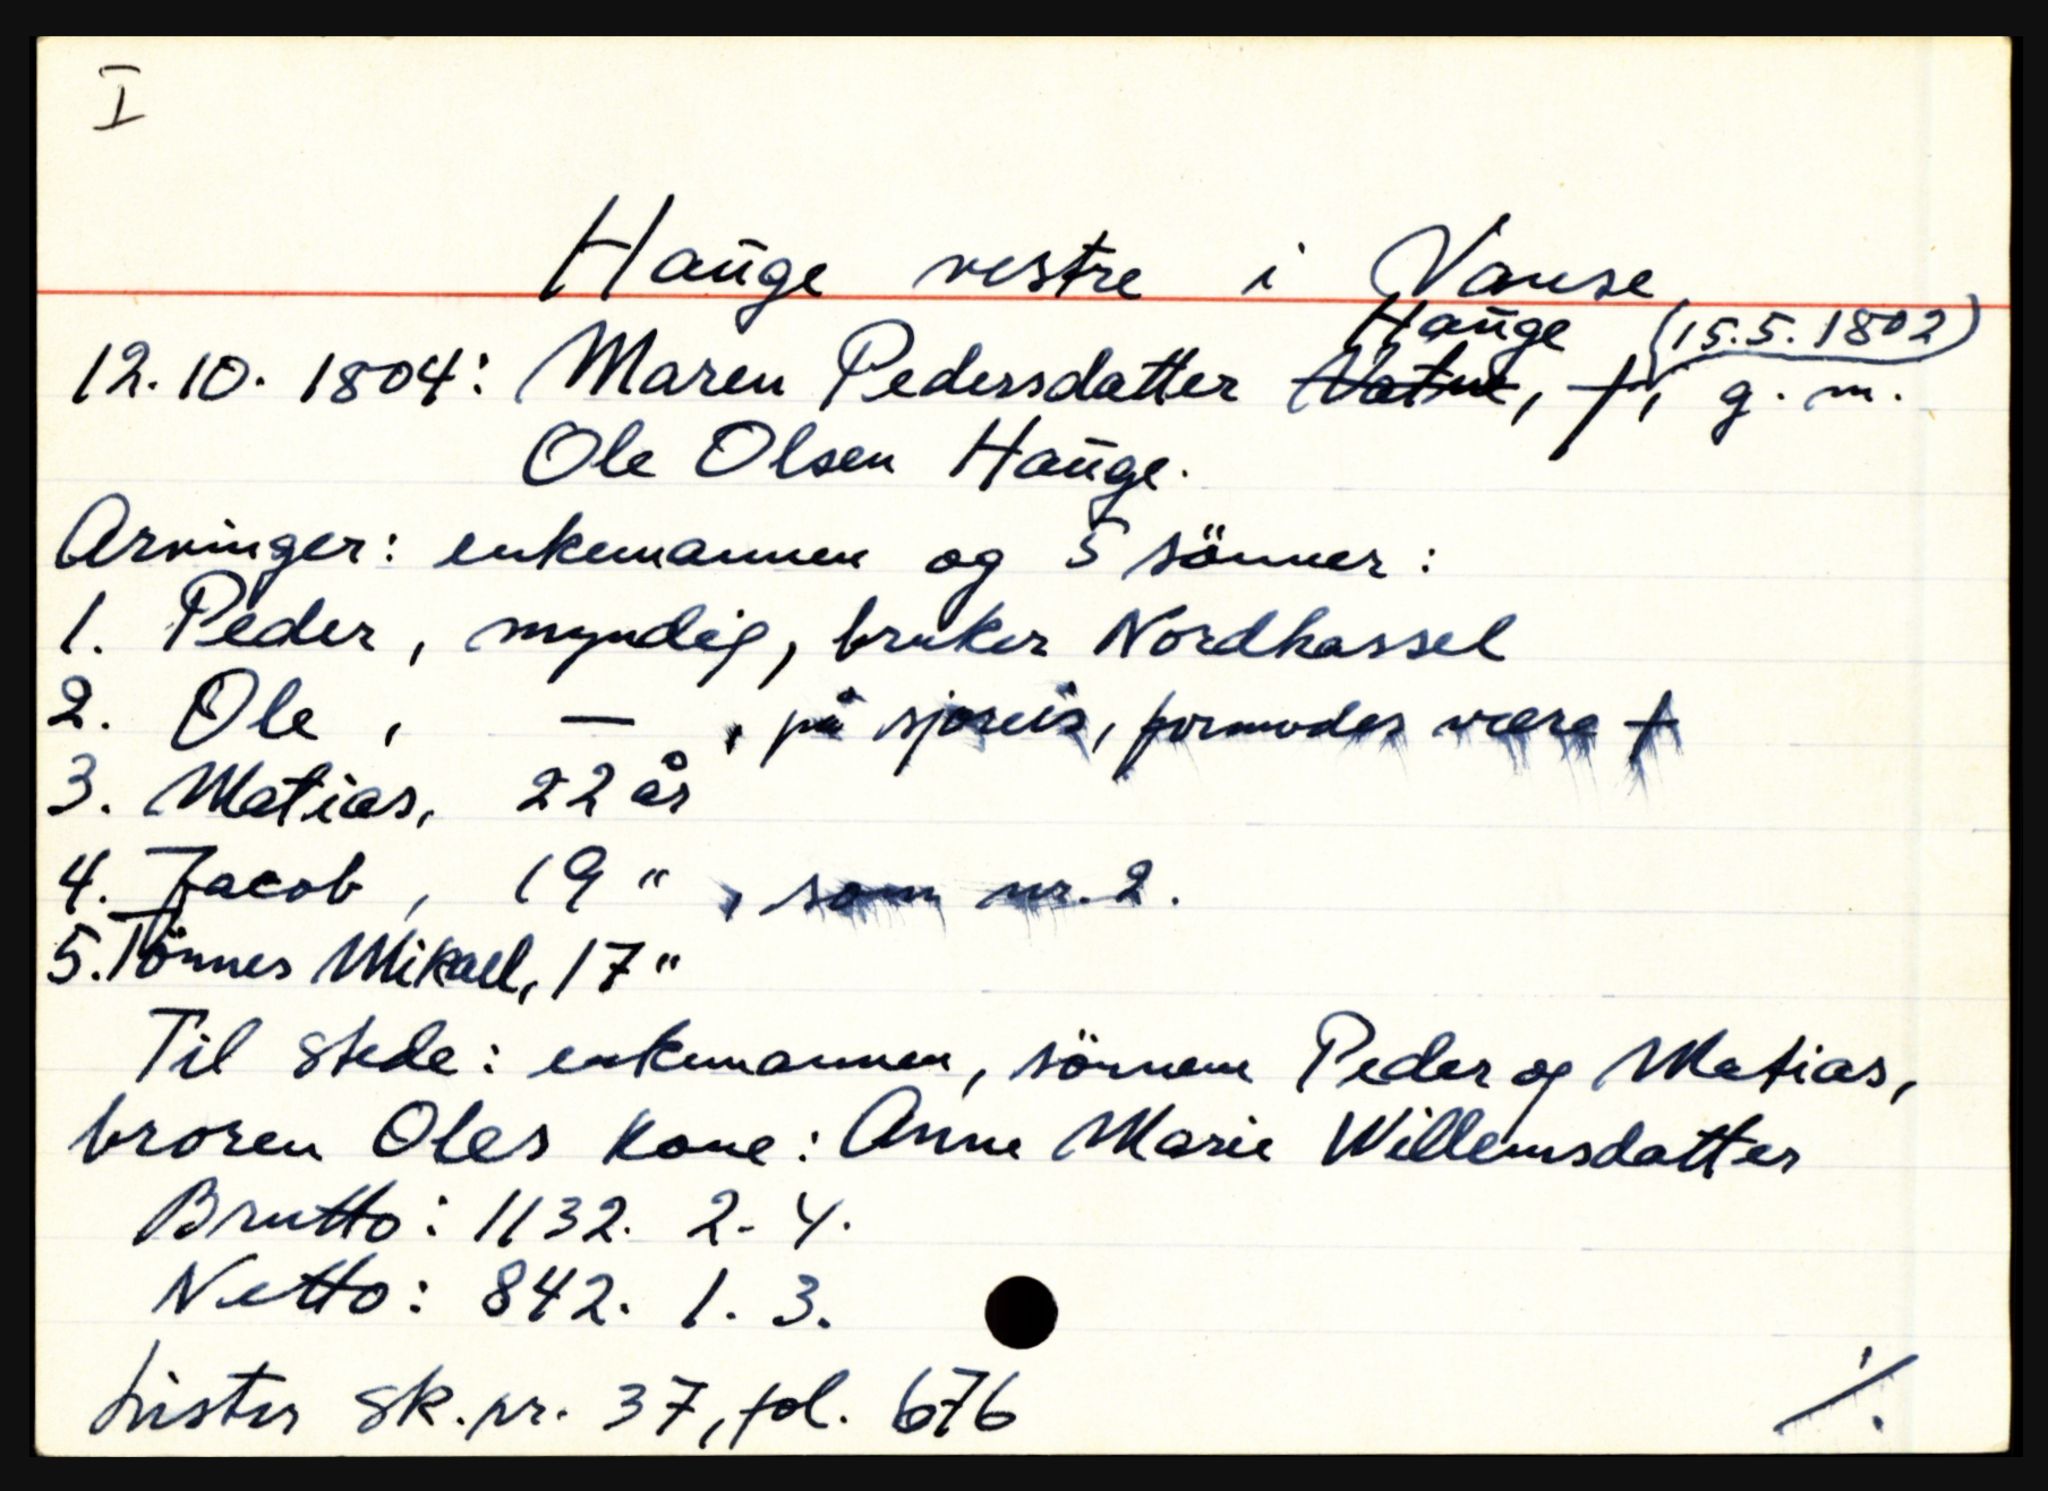 I
Hauge vestre i Vanse
Hauge (15.5.1802)
12.10.1804: Maren Pedersdatter Vatne, †, g. m.
Ole Olsen Hauge.
Arvinger: enkemannen og 5 sönner:
1. Peder, myndig, bruker Nordhassel
2. Ole, — , på sjøreis, formodes være †
3. Matias, 22 år
4. Jacob, 19 " , som nr. 2.
5. Tönnes Mikael, 17 "
Til stede: enkemannen, sönnene Peder og Matias,
broren Oles kone: Anne Marie Willemsdatter
Brutto: 1132. 2. 4.
Netto: 842. 1. 3.
Lister sk.pr. 37, fol. 676
./.